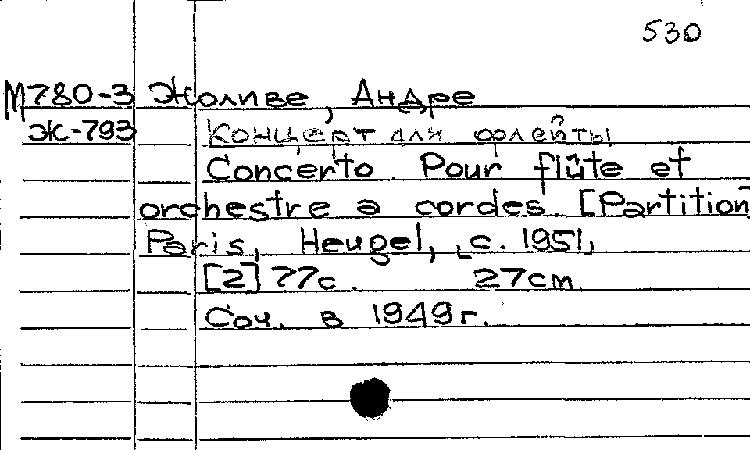 530
М780-3 Жоливе, Андре
Ж-793 Концерт для флейты
Concerto Pour flûte et
orchestre a cordes. [Partition]
Paris, Heugel, c. 1951,
[2] 77c. 27cm
Соч. в 1949г.